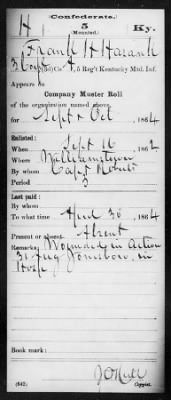 Confederate.
H 5 Ky.
(Mounted.)
Frank H
3 Corpl, Co. A, 5 Reg't Kentucky Mtd. Inf.
Appears on
Company Muster Roll
of the organization named above,
for Sept & Oct, 1864
Enlisted:
When Sept 16, 1862
Where Williamstown
By whom Capt
Period 3
Last paid:
By whom
To what time April 30, 1864
Present or absent Absent
Remarks: Wounded in Action
31 Aug Jonesboro, in
Hosp
Book mark:
(642)
Copyist.